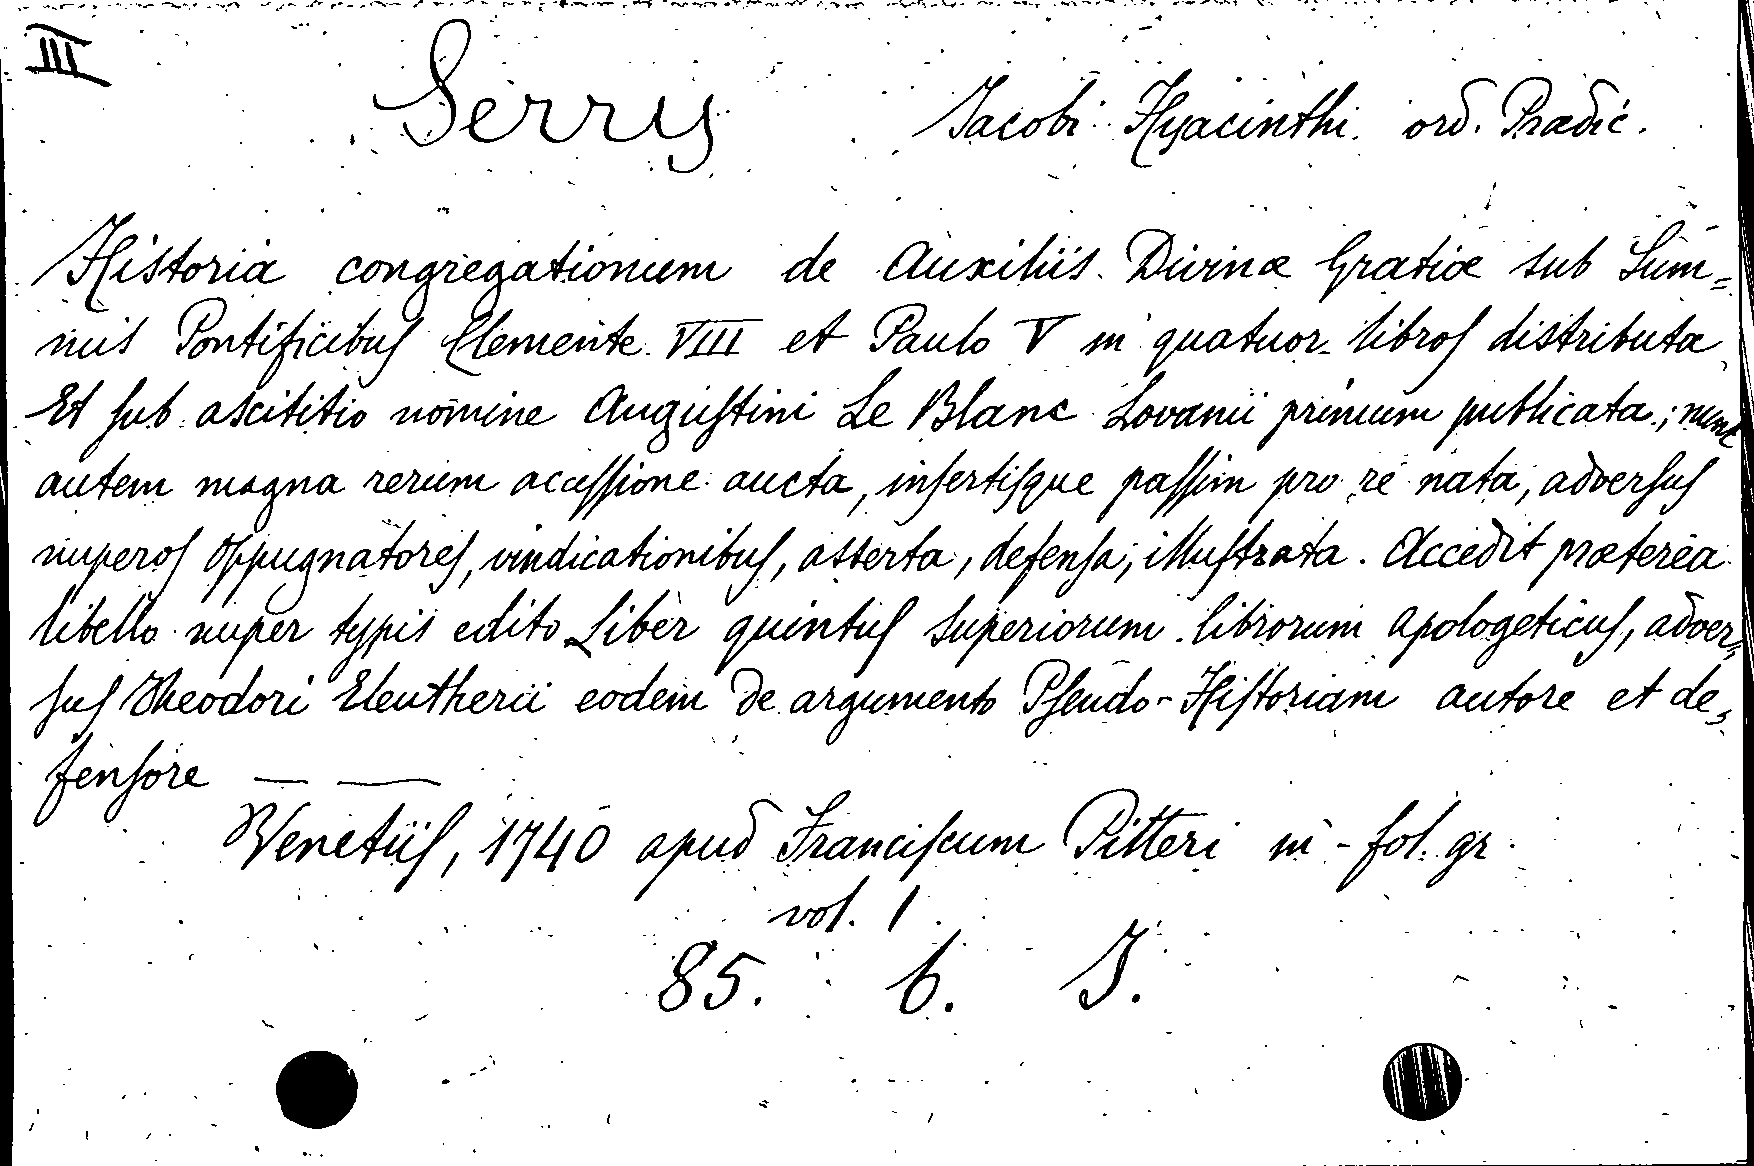 III
Serry Jacobi Hyacinthi ord. Prædic.
Historia congregationum de Auxiliis Divinæ Gratiæ sub Sum=
mis Pontificibuſ Clemente VIII et Paulo V in quatuor libroſ distributa
Et ſub ascititio nomine Auguſtini Le Blanc Lovanii primum publicata; nunc
autem magna rerum acceſſione aucta, inſertiſque paſſim pro re nata, adverſuſ
nuperoſ oppugnatoreſ, vindicationibuſ, asserta, defenſa, illuſtrata. Accedit præterea
libello nuper typis edito Liber quintuſ Superiorum librorum apologeticuſ, adver=
ſuſ Theodori Eleutherii eodem de argumento Pſeudo-Hiſtoriam autore et de=
fenſore — —
Venetiiſ, 1740 apud Franciſcum Pitteri in-fol. gr.
vol. 1
85. b. I.